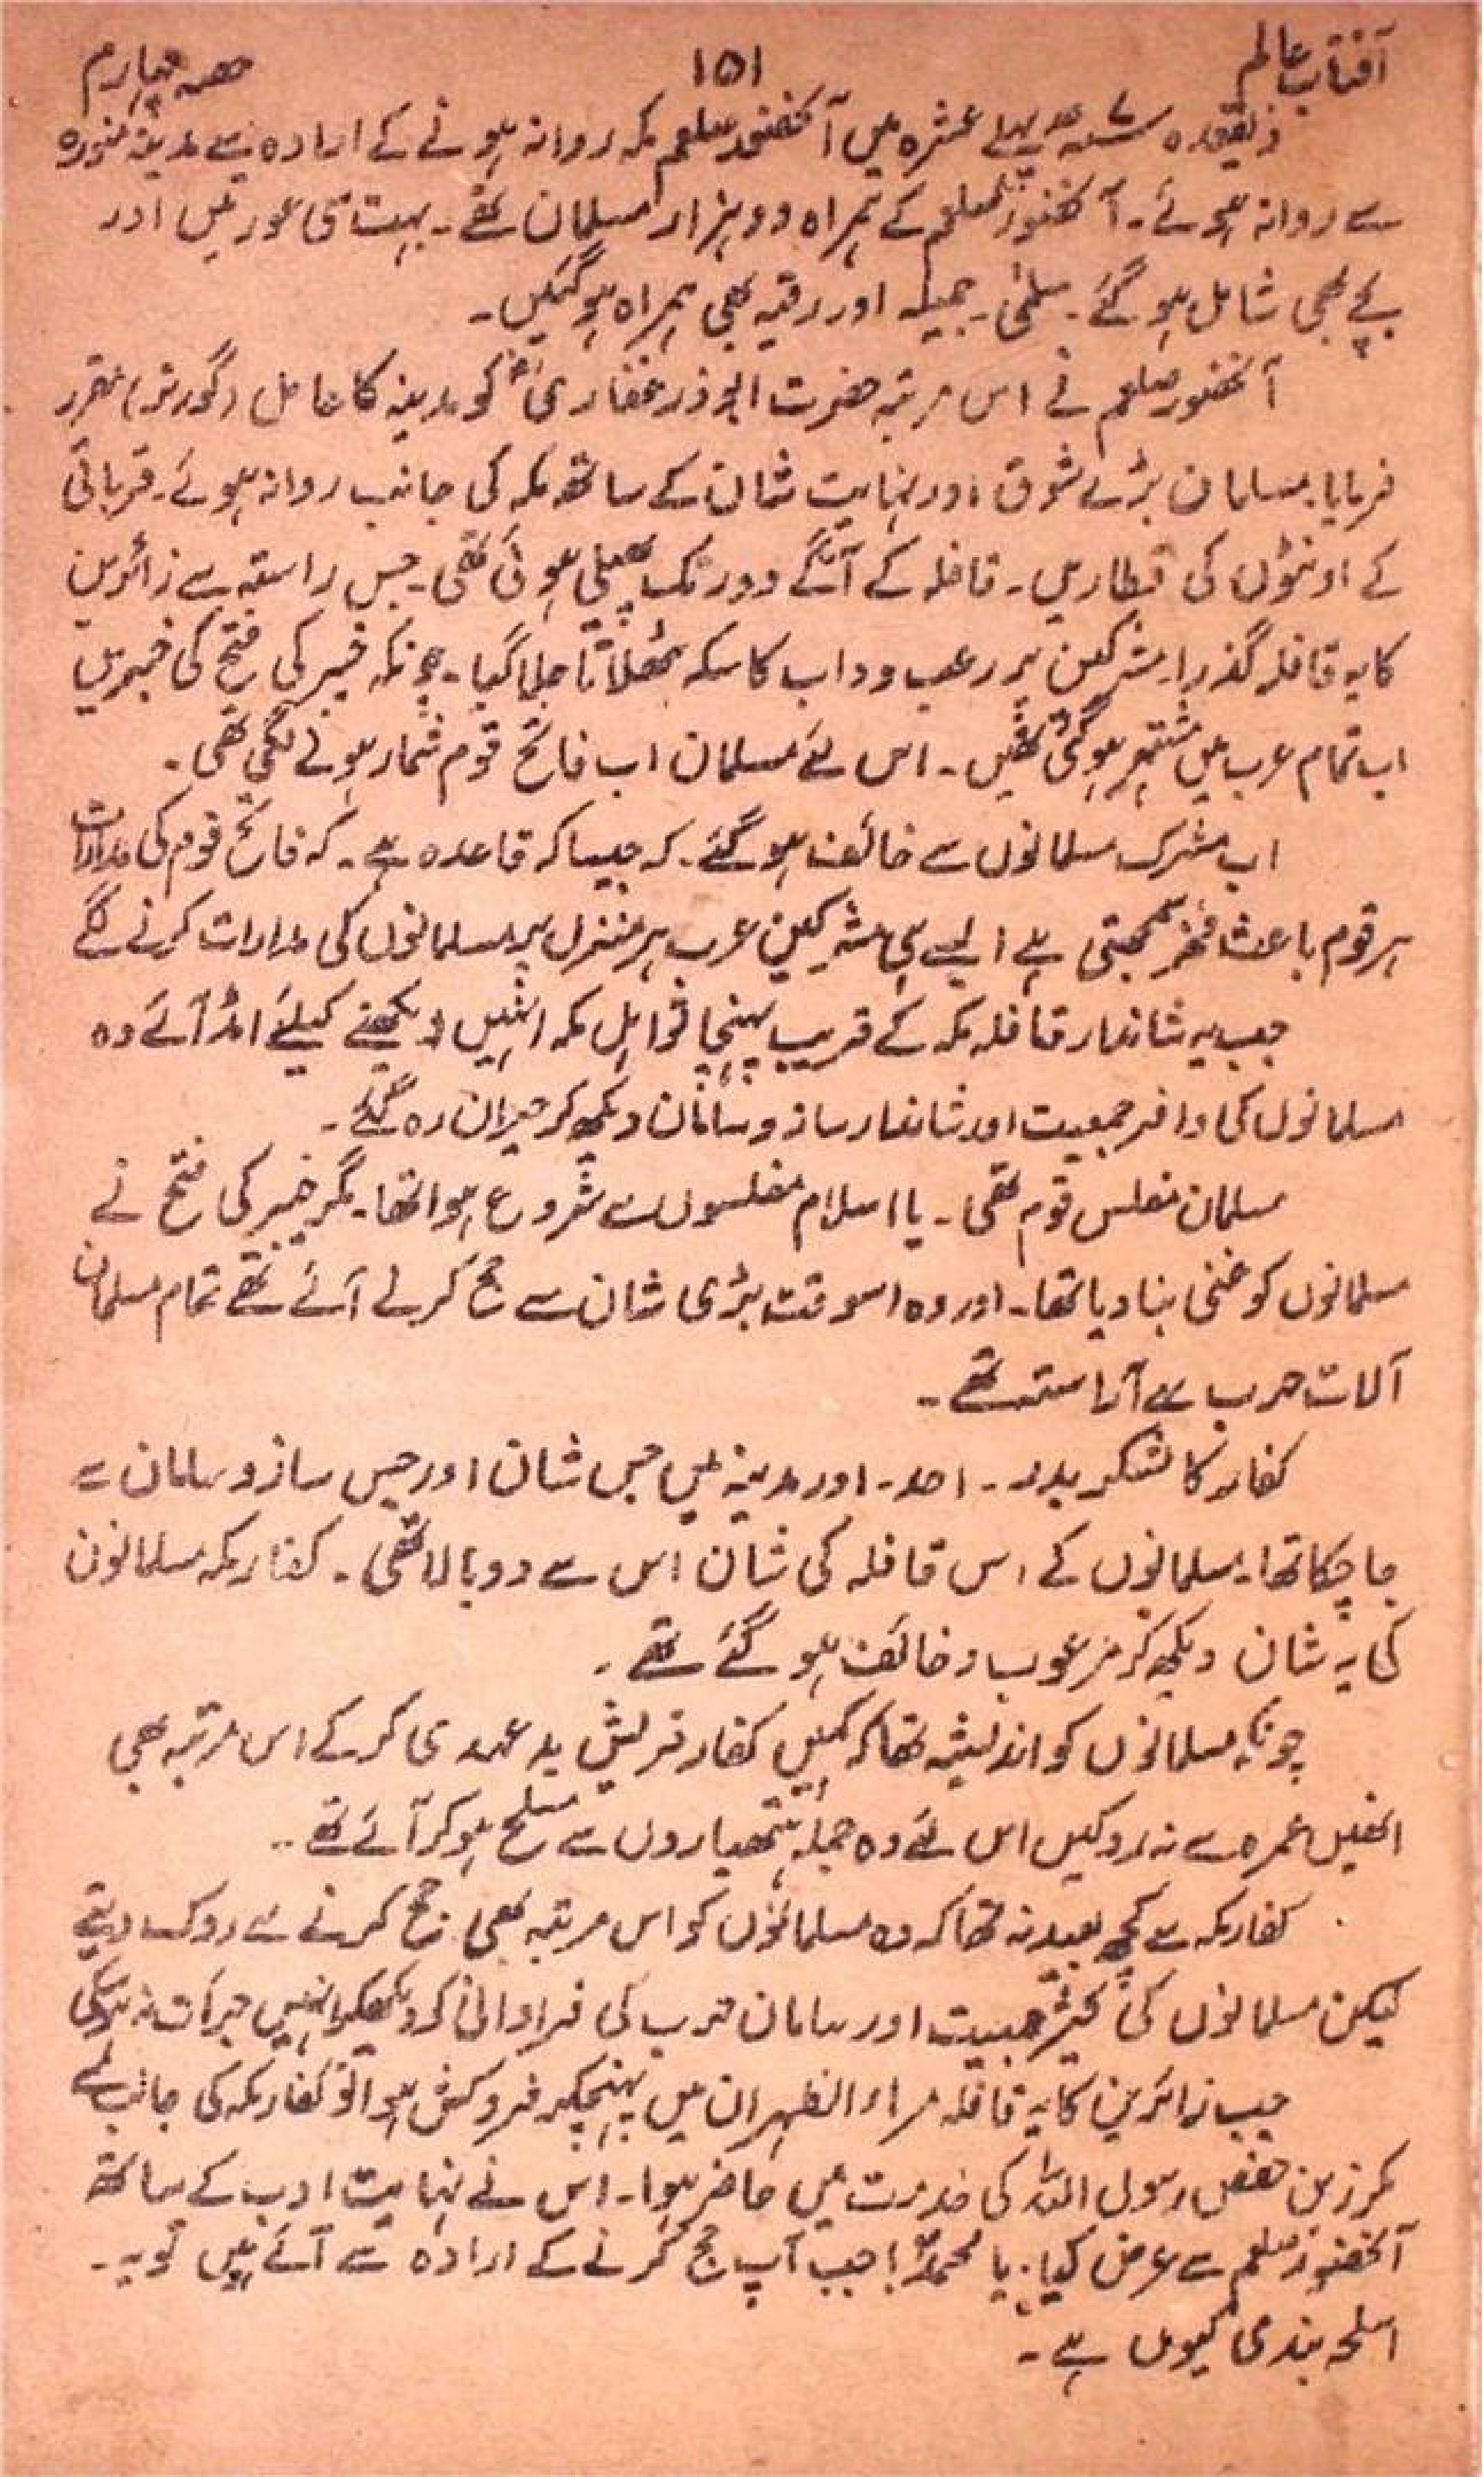 آفتاب عالم ۱۵۱ حصہ چہارم
ذیقعدہ ۷ھ پہلے عشرہ میں آنحضور صلعم مکہ روانہ ہونے کے ارادہ سے مدینہ منورہ
سے روانہ ہوئے۔ آنحضور صلعم کے ہمراہ دو ہزار مسلمان تھے۔ بہت سی عورتیں اور
بچے بھی شامل ہو گئے۔ سلمیٰ۔ جمیلہ اور رقیہ بھی ہمراہ ہو گئیں۔
آنحضور صلعم نے اس مرتبہ حضرت ابوذر غفاریؓ کو مدینہ کا عامل (گورنر) مقرر
فرمایا۔ مسلمان بڑے شوق اور نہایت شان کے ساتھ مکہ کی جانب روانہ ہوئے۔ قربانی
کے اونٹوں کی قطاریں۔ قافلہ کے آگے دور تک پھیلی ہوئی تھی۔ جس راستہ سے زائرین
کا یہ قافلہ گذرا۔ مشرکین پر رعب و داب کا سکہ بٹھلاتا چلا گیا۔ چونکہ خیبر کی فتح کی خبریں
اب تمام عرب میں مشتہر ہو گئی تھیں۔ اس لئے مسلمان اب فاتح قوم شمار ہونے لگی تھی۔
اب مشرک مسلمانوں سے خائف ہو گئے۔ کہ جیسا کہ قاعدہ ہے۔ کہ فاتح قوم کی مدارات
ہر قوم باعث فخر سمجھتی ہے ایسے ہی مشرکین عرب ہر منزل پر مسلمانوں کی مدارات کرنے لگے
جب یہ شاندار قافلہ مکہ کے قریب پہنچا تو اہل مکہ انہیں دیکھنے کیلئے امڈ آئے وہ
مسلمانوں کی وافر جمعیت اور شاندار ساز و سامان دیکھ کر حیران رہ گئے۔
مسلمان مفلس قوم تھی۔ یا اسلام مفلسوں سے شروع ہوا تھا۔ مگر خیبر کی فتح نے
مسلمانوں کو غنی بنا دیا تھا۔ اور وہ اسوقت بڑی شان سے حج کرنے آئے تھے تمام مسلمان
آلات حرب سے آراستہ تھے۔
کفار کا لشکر بدر۔ احد۔ اور مدینہ میں جس شان اور جس ساز و سامان سے
جا چکا تھا۔ مسلمانوں کے اس قافلہ کی شان اس سے دوبالا تھی۔ کفار مکہ مسلمانوں
کی یہ شان دیکھ کر مرعوب و خائف ہو گئے تھے۔
چونکہ مسلمانوں کو اندیشہ تھا کہ کہیں کفار قریش بد عہدی کر کے اس مرتبہ بھی
انھیں عمرہ سے نہ روکیں اس لئے وہ جملہ ہتھیاروں سے مسلح ہو کر آئے تھے۔۔
کفار مکہ سے کچھ بعید نہ تھا کہ وہ مسلمانوں کو اس مرتبہ بھی حج کرنے سے روک دیتے
لیکن مسلمانوں کی کثیر جمعیت اور سامان حرب کی فراوانی کو دیکھکر انہیں جرأت نہ ہو سکی
جب زائرین کا یہ قافلہ مرار الظہران میں پہنچکر فروکش ہوا تو کفار مکہ کی جانب سے
مکرز بن حفص رسول اللہ کی خدمت میں حاضر ہوا۔ اس نے نہایت ادب کے ساتھ
آنحضور صلعم سے عرض کیا۔ یا محمدؐ! جب آپ حج کرنے کے ارادہ سے آئے ہیں تو یہ۔
اسلحہ بندی کیوں ہے۔